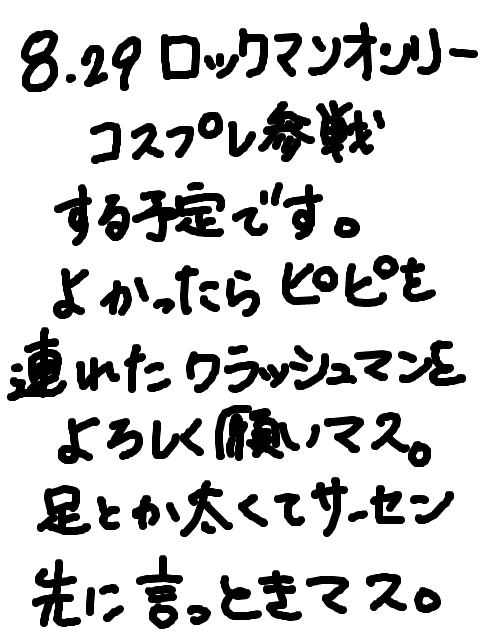 8.29 ロックマンオンリー
コスプレ参戦
する予定です。
よかったら ピピを
連れた クラッシュマンを
よろしく願いマス。
足とか太くてサーセン
先に言っときマス。